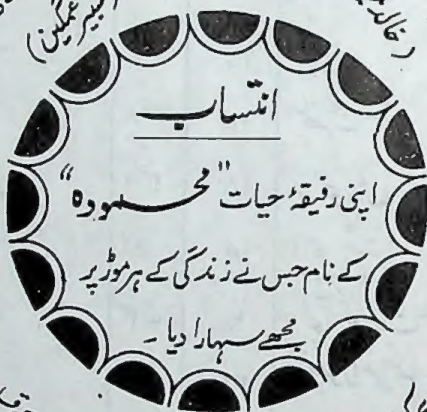 انتساب
اپنی رفیقۂ حیات "محمودہ"
کے نام جس نے زندگی کے ہر موڑ پر
مجھے سہارا دیا ۔